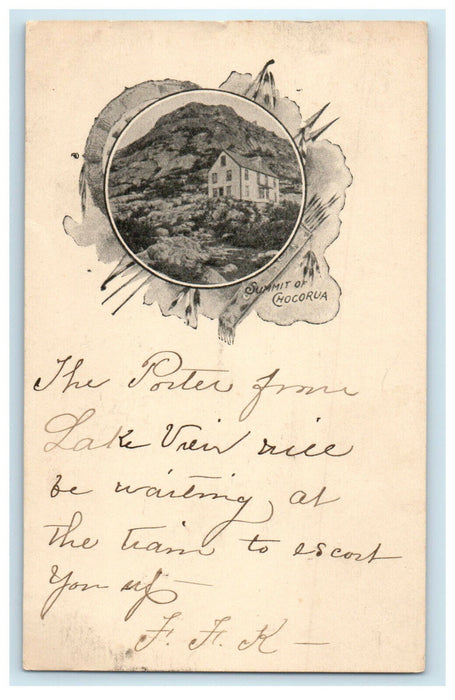 SUMMIT OF
CHOCORUA
The Porter from
Lake View will
be waiting at
the train to escort
you up —
F. F. K —